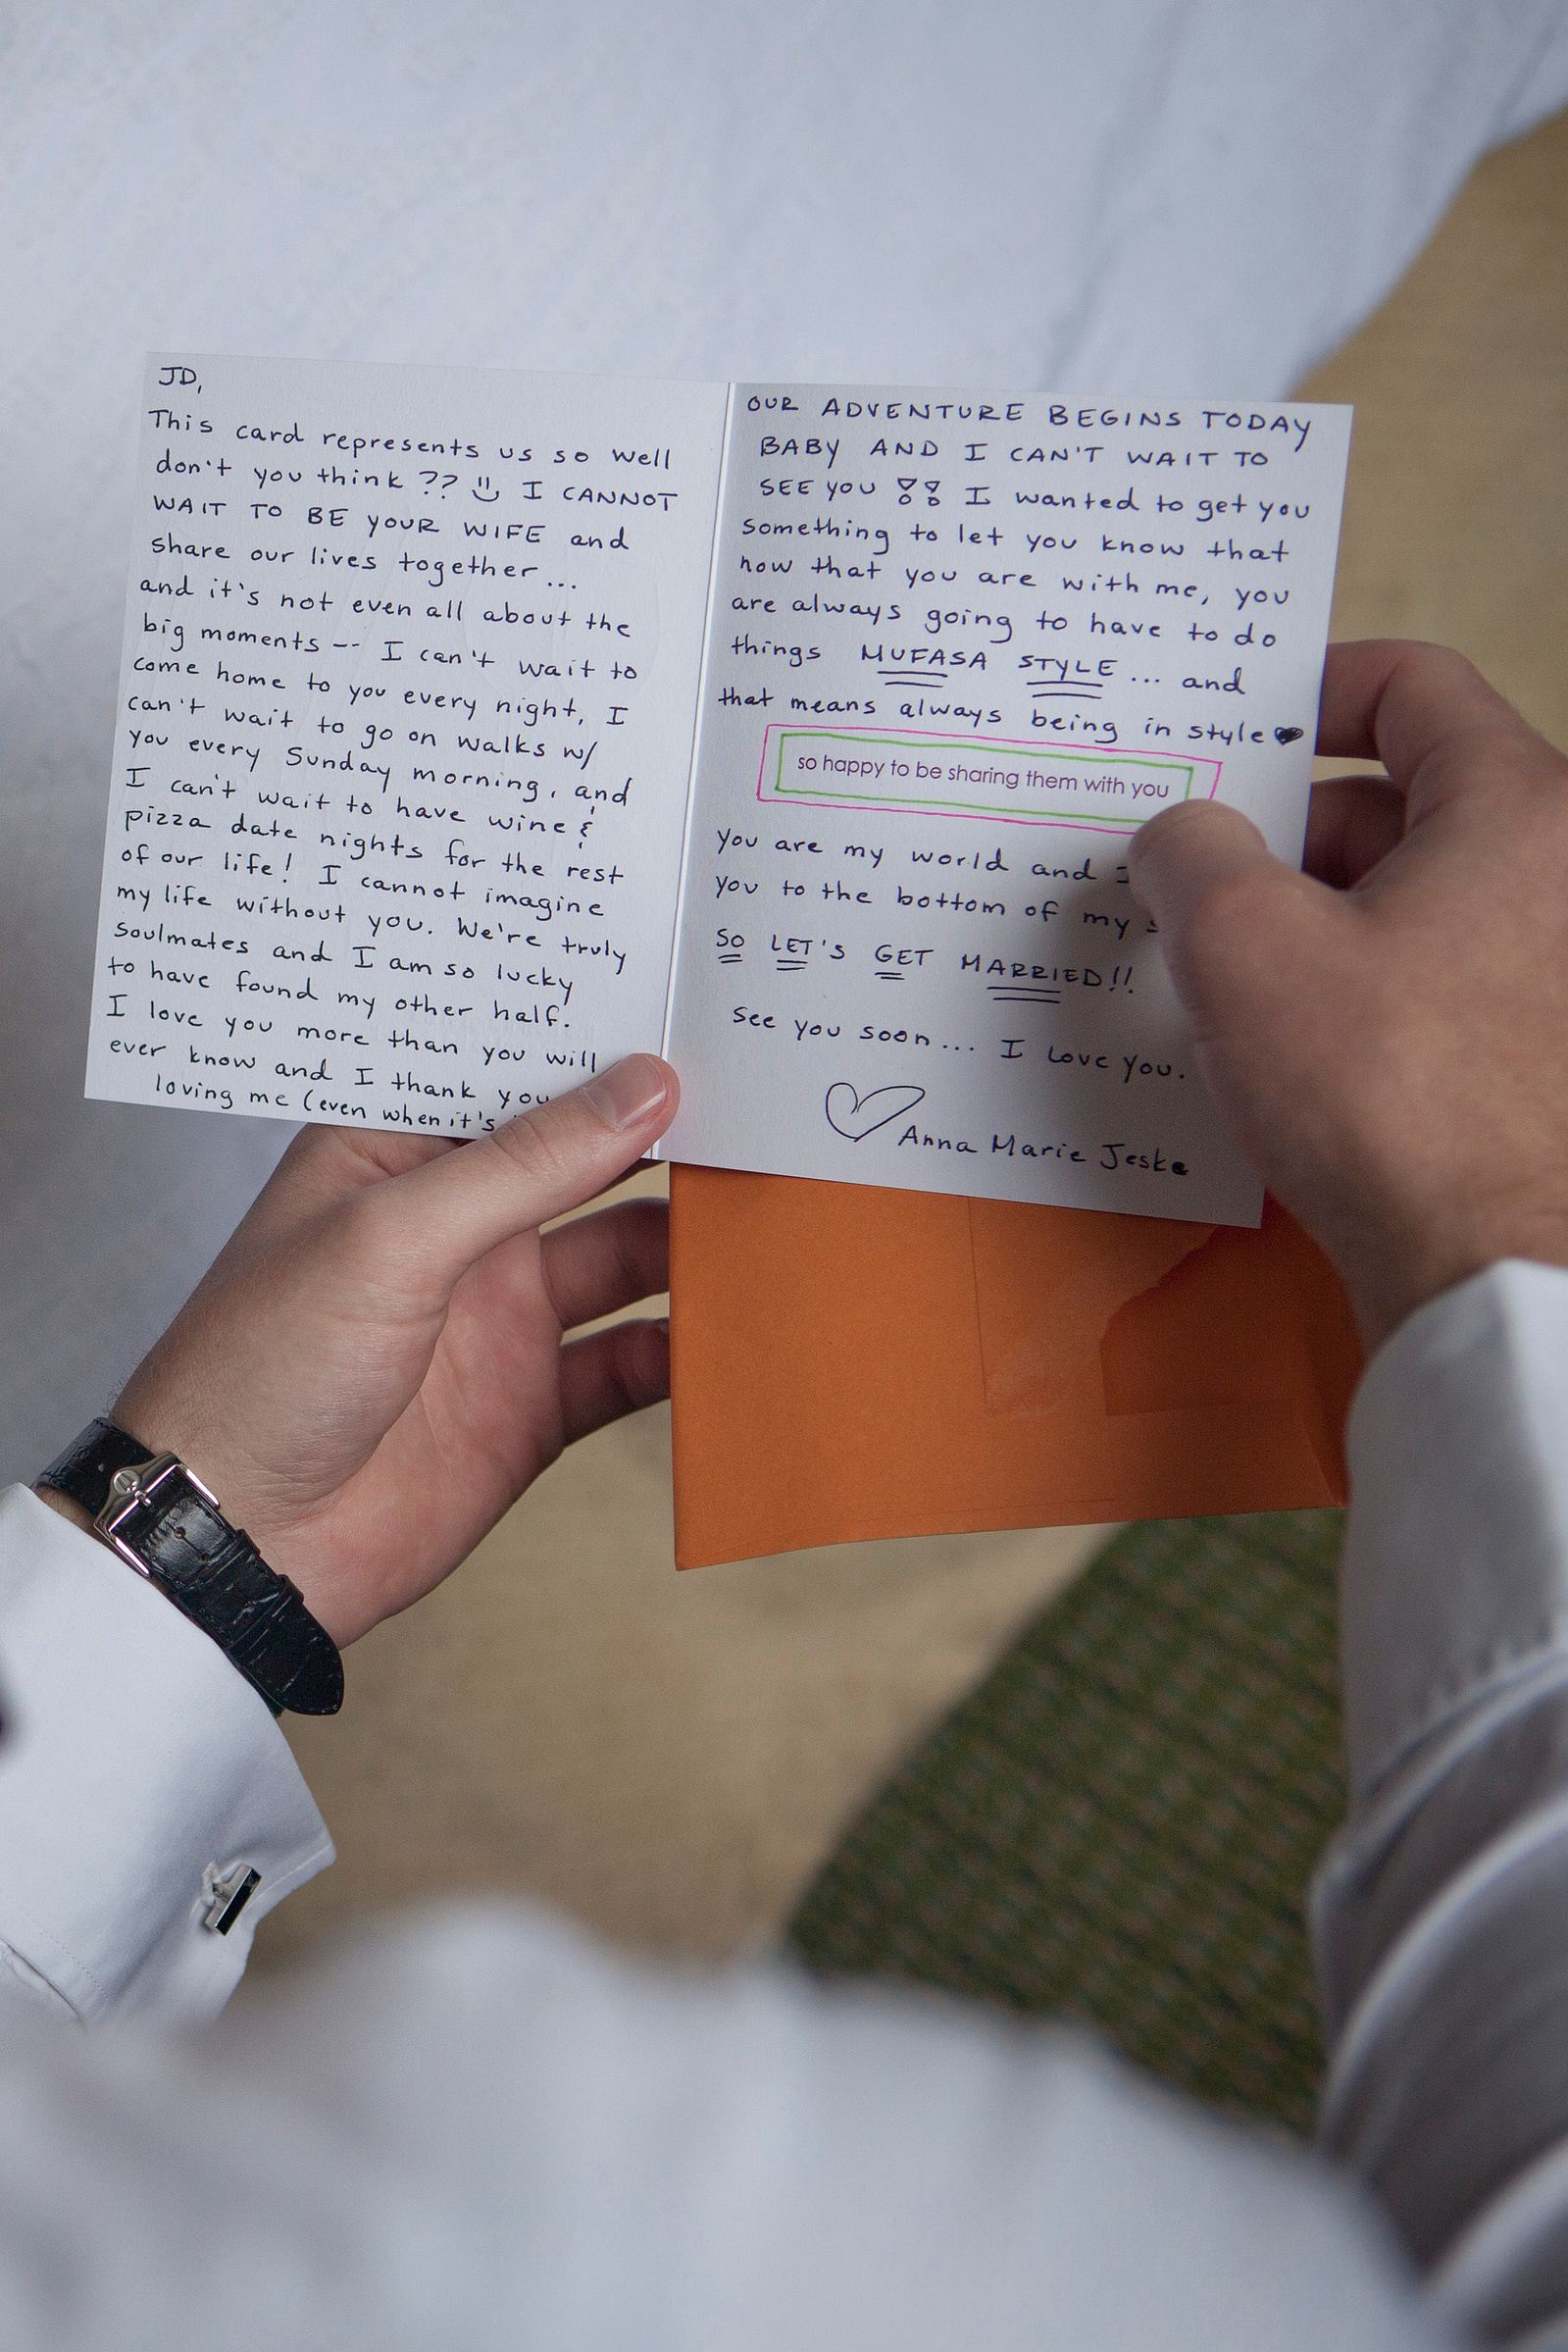 JD,
This card represents us so well
don't you think ?? I CANNOT
WAIT TO BE YOUR WIFE and
share our lives together...
and it's not even all about the
big moments -- I can't wait to
come home to you every night, I
can't wait to go on walks w/
you every Sunday morning, and
I can't wait to have wine &
pizza date nights for the rest
of our life! I cannot imagine
my life without you. We're truly
soulmates and I am so lucky
to have found my other half.
I love you more than you will
ever know and I thank you
loving me (even when it's
OUR ADVENTURE BEGINS TODAY
BABY AND I CAN'T WAIT TO
SEE YOU !! I wanted to get you
something to let you know that
now that you are with me, you
are always going to have to do
things MUFASA STYLE... and
that means always being in style
so happy to be sharing them with you
You are my world and I
you to the bottom of my
SO LET'S GET MARRIED!!
See you soon... I love you.
Anna Marie Jeske